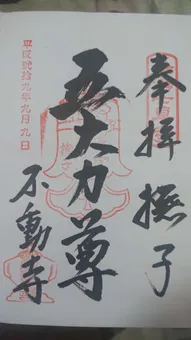 奉拝 撫子
五大力尊
不動寺
平成貮拾九年九月九日